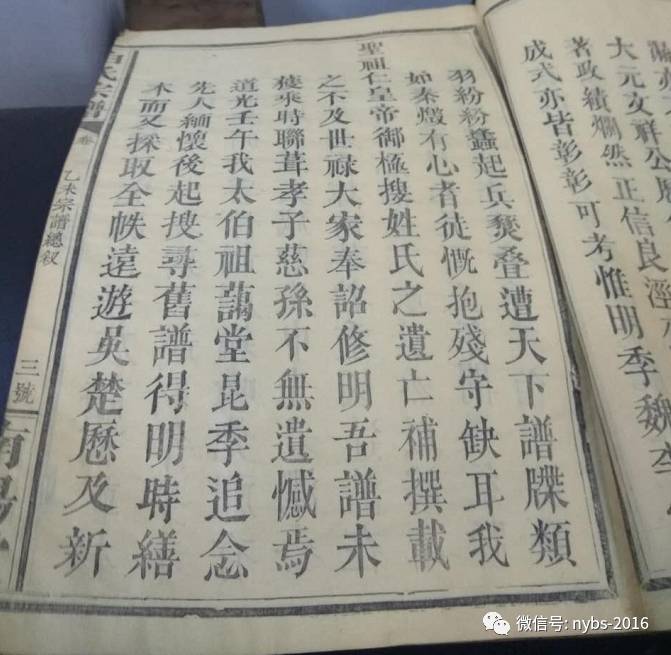 大元文祥公
著政績爛然正信良涇
成式亦皆彰彰可考惟明季魏李
羽紛紛蠭起兵燹叠遭天下譜牒類
如秦燬有心者徒慨抱殘守缺耳我
聖祖仁皇帝御極搜姓氏之遺亡補撰載
之不及世禄大家奉詔修明吾譜未
獲乘時聯葺孝子慈孫不無遺憾焉
道光壬午我太伯祖藹堂昆季追念
先人緬懷後起搜尋舊譜得明時繕
本而又採取全帙遠遊吳楚歷及新
氏宗譜
卷
乙未宗譜總叙
三號
南陽
微信号: nybs-2016